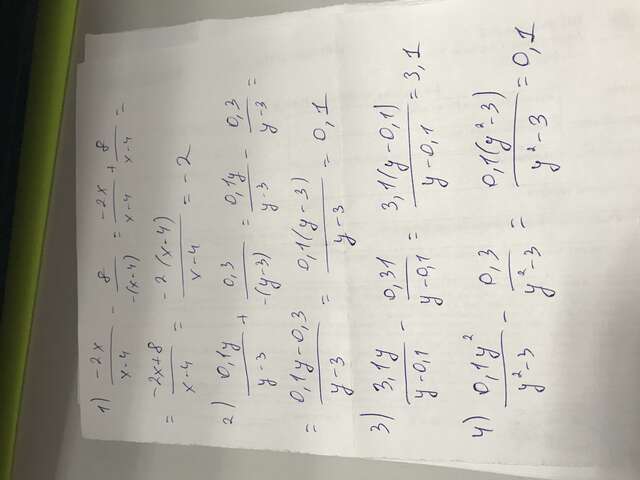 1) \frac{-2x}{x-4} - \frac{8}{-(x-4)} = \frac{-2x}{x-4} + \frac{8}{x-4} =
= \frac{-2x+8}{x-4} = \frac{-2(x-4)}{x-4} = -2
2) \frac{0,1y}{y-3} + \frac{0,3}{-(y-3)} = \frac{0,1y}{y-3} - \frac{0,3}{y-3} =
= \frac{0,1y-0,3}{y-3} = \frac{0,1(y-3)}{y-3} = 0,1
3) \frac{3,1y}{y-0,1} - \frac{0,31}{y-0,1} = \frac{3,1(y-0,1)}{y-0,1} = 3,1
4) \frac{0,1y^2}{y^2-3} - \frac{0,3}{y^2-3} = \frac{0,1(y^2-3)}{y^2-3} = 0,1